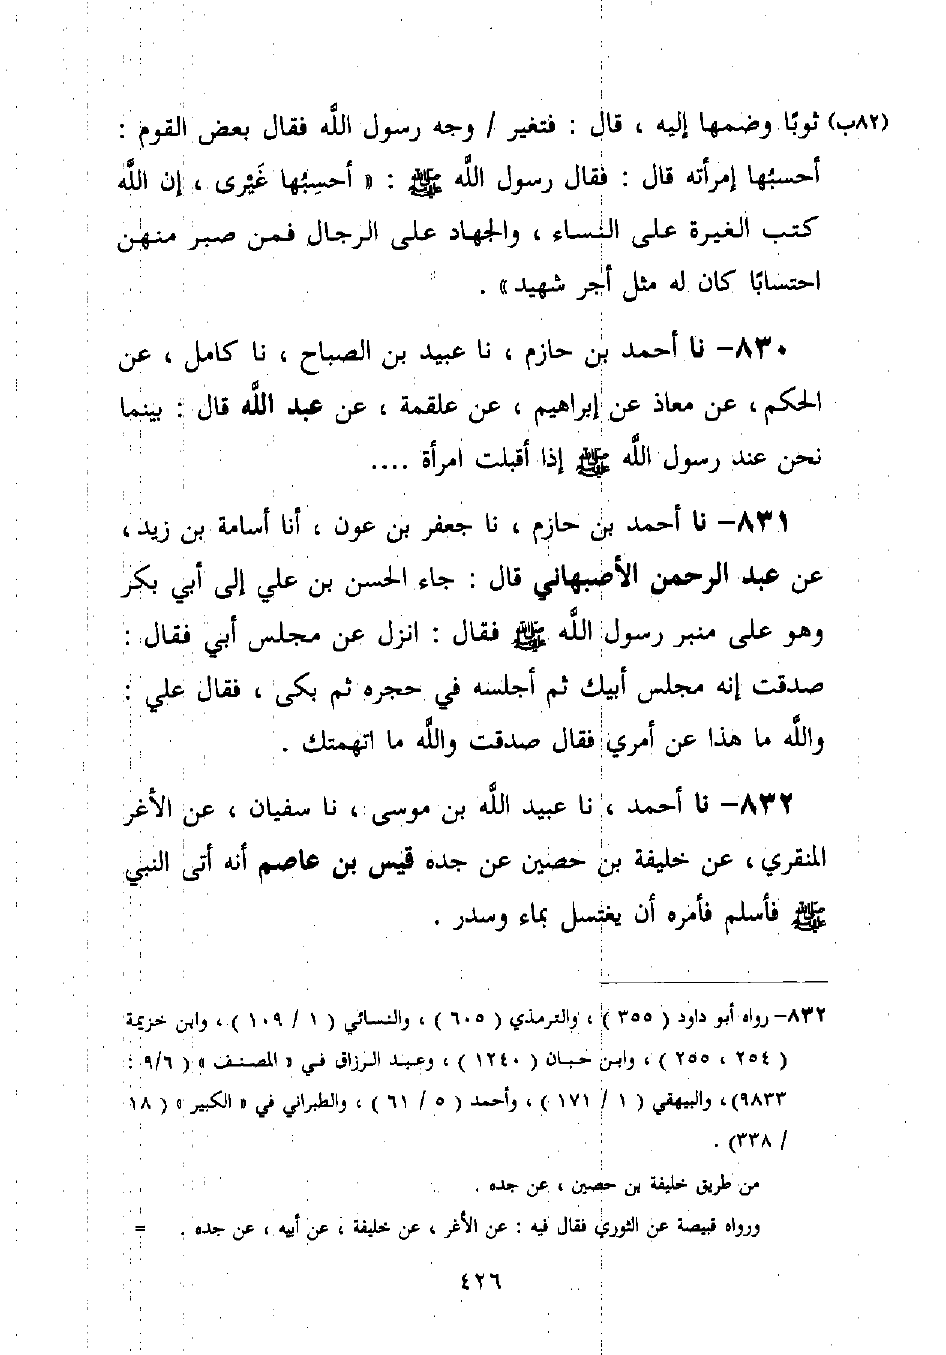 (٨٢ب) ثوبًا وضمها إليه ، قال : فتغير / وجه رسول الله فقال بعض القوم :
أحسبُها إمرأته قال : فقال رسول الله ﷺ : « أحسِبُها غَيْرى ، إن الله
كتب الغيرة على النساء ، والجهاد على الرجال فمن صبر منهن
احتسابًا كان له مثل أجر شهيد » .
٨٣٠- نا أحمد بن حازم ، نا عبيد بن الصباح ، نا كامل ، عن
الحكم ، عن معاذ عن إبراهيم ، عن علقمة ، عن عبد الله قال : بينما
نحن عند رسول الله ﷺ إذا أقبلت امرأة ....
٨٣١- نا أحمد بن حازم ، نا جعفر بن عون ، أنا أسامة بن زيد ،
عن عبد الرحمن الأصبهاني قال : جاء الحسن بن علي إلى أبي بكر
وهو على منبر رسول الله ﷺ فقال : انزل عن مجلس أبي فقال :
صدقت إنه مجلس أبيك ثم أجلسه في حجره ثم بكى ، فقال علي :
والله ما هذا عن أمري فقال صدقت والله ما اتهمتك .
٨٣٢- نا أحمد ، نا عبيد الله بن موسى ، نا سفيان ، عن الأغر
المنقري ، عن خليفة بن حصين عن جده قيس بن عاصم أنه أتى النبي
ﷺ فأسلم فأمره أن يغتسل بماء وسدر .
٨٣٢- رواه أبو داود ( ٣٥٥ ) ، والترمذي ( ٦٠٥ ) ، والنسائي ( ١ / ١٠٩ ) ، وابن خزيمة
( ٢٥٤ ، ٢٥٥ ) ، وابن حبان ( ١٢٤٠ ) ، وعبد الرزاق في « المصنف » ( ٩/٦ :
٩٨٣٣) ، والبيهقي ( ١ / ١٧١ ) ، وأحمد ( ٥ / ٦١ ) ، والطبراني في « الكبير » ( ١٨
/ ٣٣٨) .
من طريق خليفة بن حصين ، عن جده .
ورواه قبيصة عن الثوري فقال فيه : عن الأغر ، عن خليفة ، عن أبيه ، عن جده . =
٤٢٦